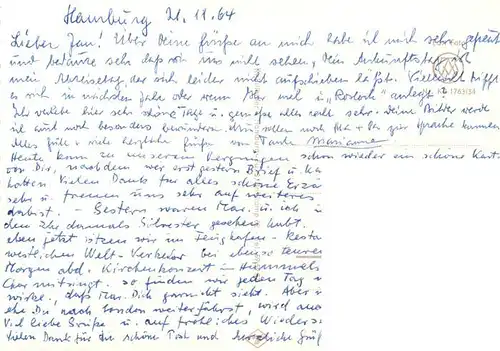 Hamburg 21.11.64
Lieber Jan! Über Deine Grüße an mich habe ich mich sehr gefreut
und bedaure sehr daß wir uns nicht sehen, Dein Ankunftstag ist
mein Abreisetag der sich leider nicht aufschieben läßt. Vielleicht trifft
es sich im nächsten Jahr oder wenn Ihr mal in „Rostock" anlegt.
Ich verlebe hier sehr schöne Tage u. genieße alles recht sehr. Deine Bilder werde
ich auch noch besonders bewundern, die sollen noch zur Sprache kommen
Alles Gute + viele herzliche Grüße von Tante Marianne
Heute kam zu unserem Vergnügen schon wieder ein schöne Kart
von Dir, nachdem wir erst gestern Brief u. Ka
hatten Vielen Dank für alles schöne Erzä
sehr u. freuen uns sehr auf weiteres
dabist. - Gestern waren Mar. u. ich i
den Ihr damals Silvester gesehen habt.
eben jetzt sitzen wir im Flughafen-Resta
westlichen Welt-Verkehr bei ebenso teuren
Morgen abd. Kirchenkonzert - Hummels
Chor mitsingt. so finden wir jeden Tag
wirke, daß Mar. Dich garnicht sieht. Aber
ehe Du nach London weiterfährst, wird aus
Viel liebe Grüße u. auf fröhliches Wieders
Vielen Dank für die schöne Post und herzliche Grüß